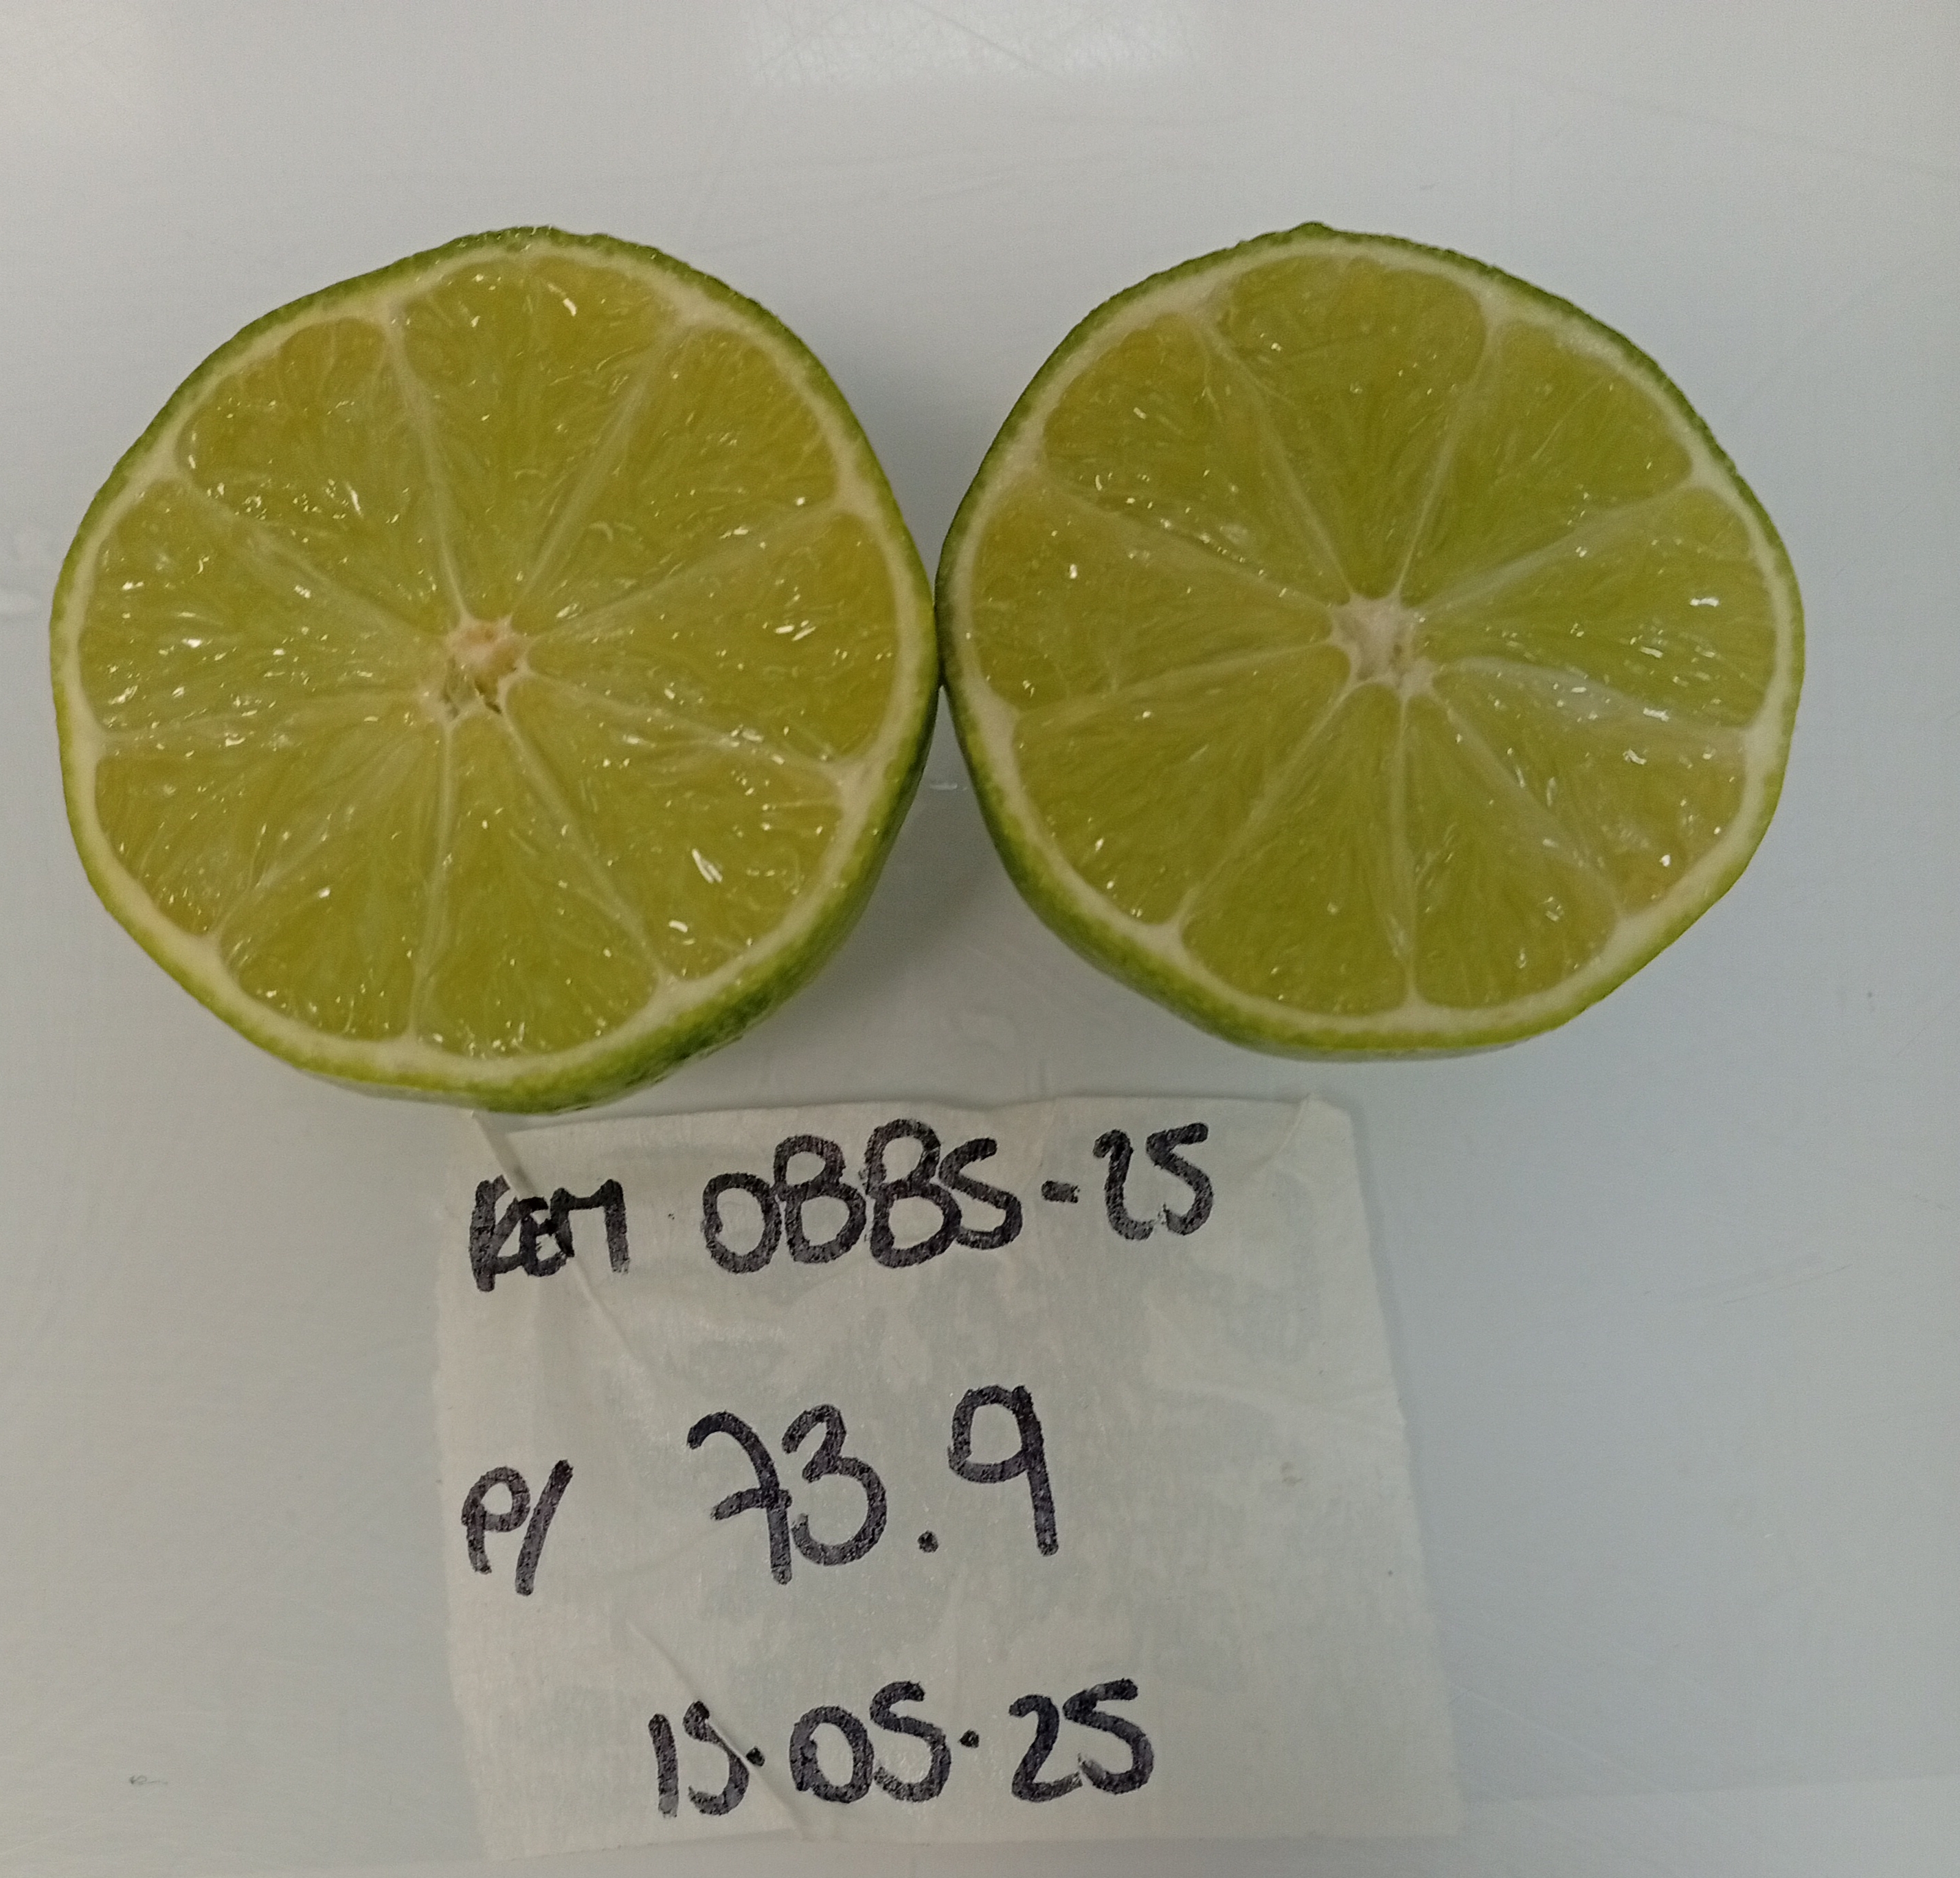 REM 0885-25
P/ 73.9
15.05.25